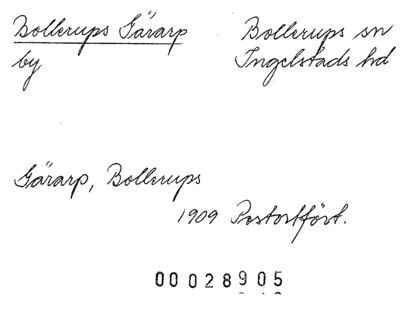 Bollerups Gärarp Bollerups sn
by Ingelstads hd
Gärarp, Bollerups
1909 Postortfört.
00028905